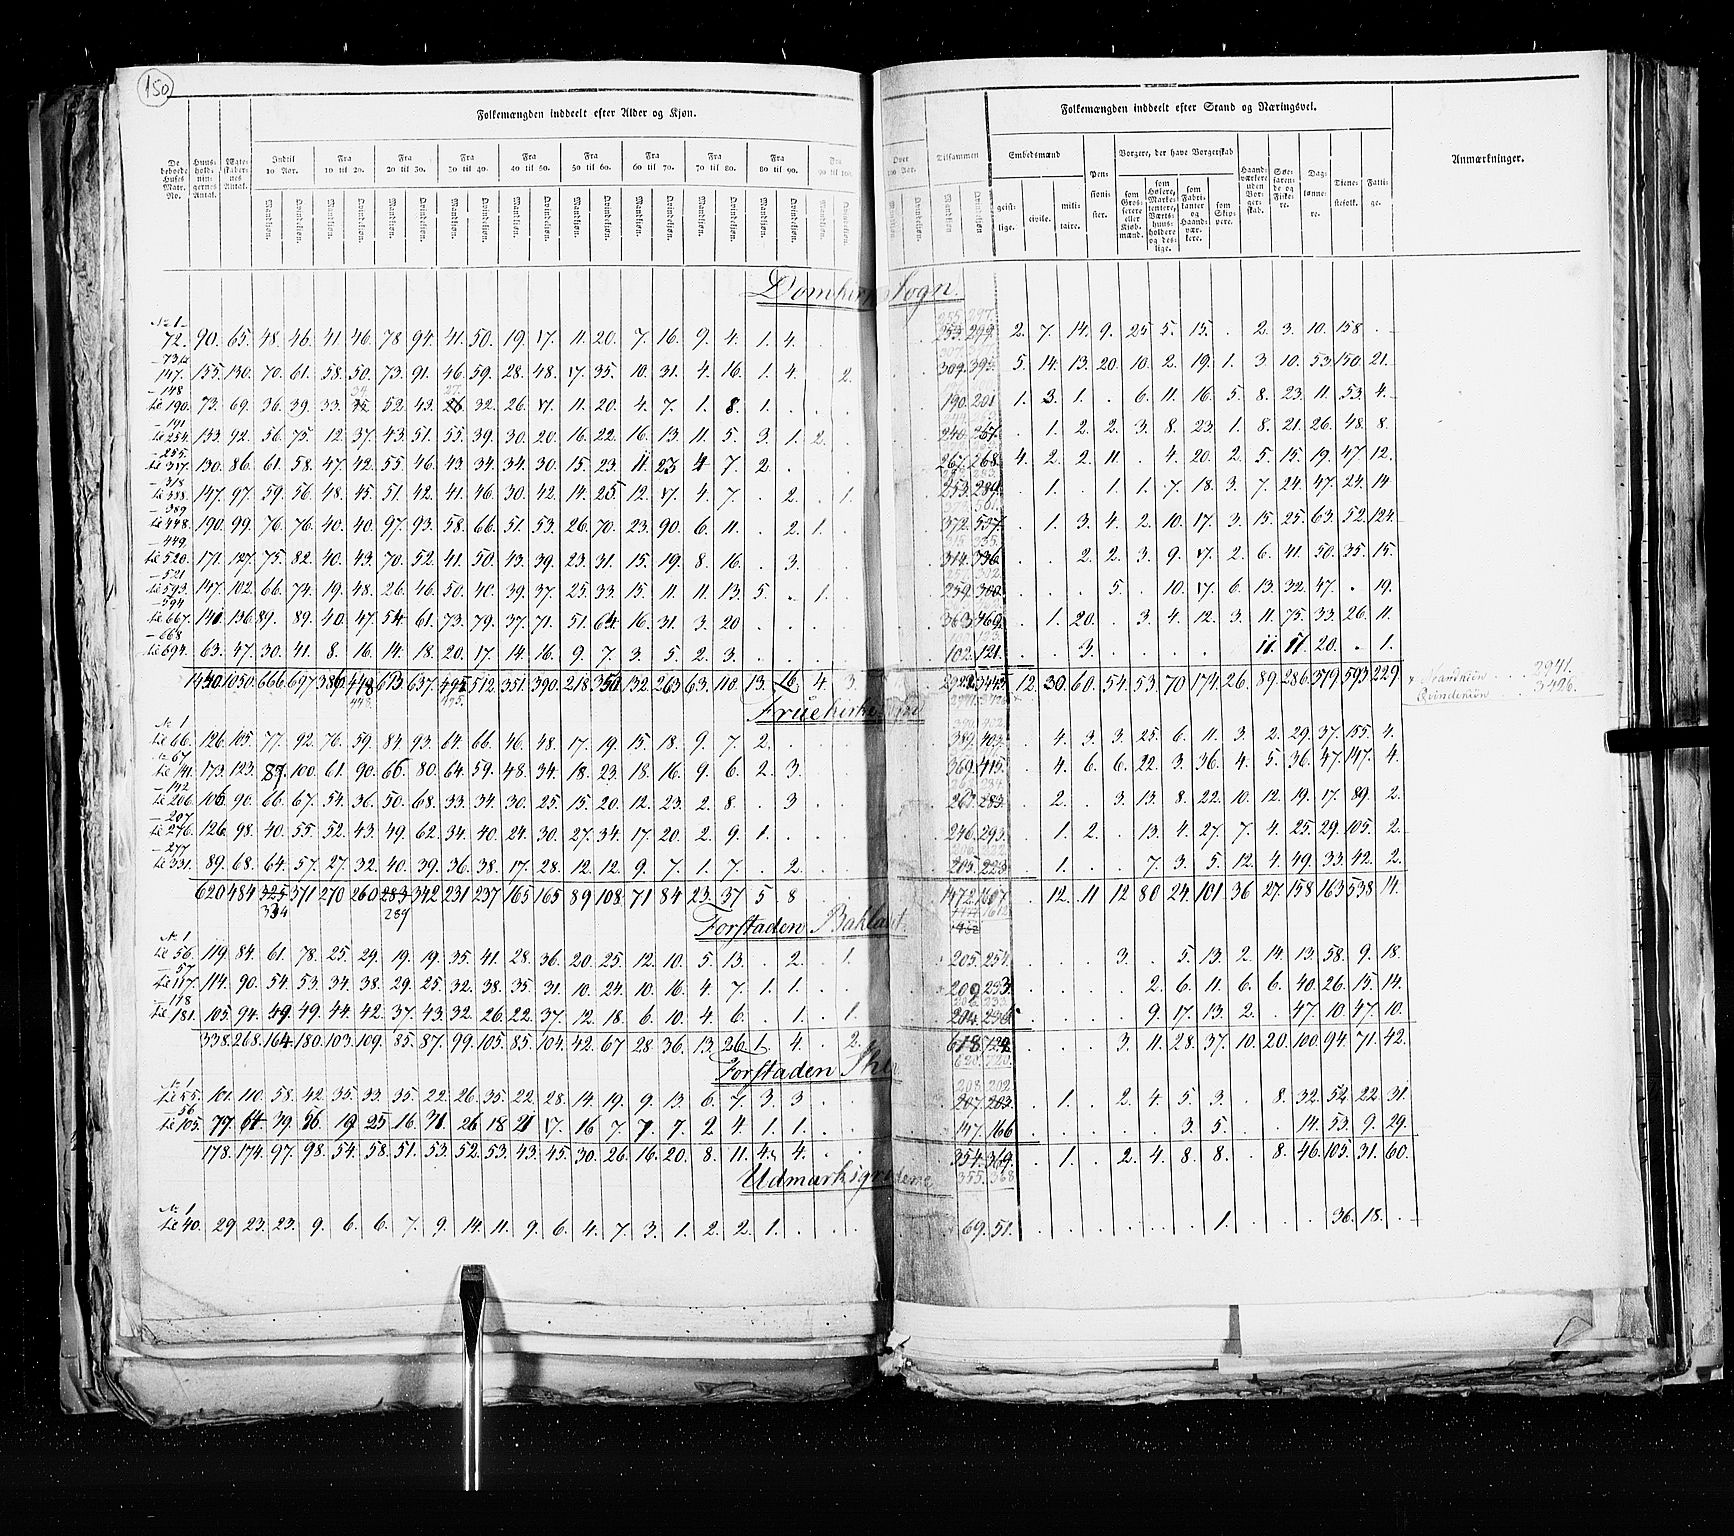 150
Folkemængden inddeelt efter Alder og Kjøn.
Folkemængden inddeelt efter Stand og Næringsvei.
De beboede Huses Matr. No.
Huusholdningernes Antal.
Ægteskabernes Antal.
Indtil 10 Aar.
Fra 10 til 20.
Fra 20 til 30.
Fra 30 til 40.
Fra 40 til 50.
Fra 50 til 60.
Fra 60 til 70.
Fra 70 til 80.
Fra 80 til 90.
Fra 90 til 100.
Over 100 Aar.
Tilsammen
Mandkjøn. Qvindekjøn.
Embedsmænd
geistlige. civile. militaire.
Pensionister.
Borgere, der have Borgerskab
som Grosserere eller Kjøbmænd.
som Høkere, Marketentere, Værtshuusholdere og deslige.
som Fabrikanter og Haandværkere.
som Skippere.
Haandværkere uden Borgerskab.
Søefarende og Fiskere.
Daglønnere.
Tienestefolk.
Fattige.
Anmærkninger.
Domkirk Sogn.
No 1–72. 90. 65. 48. 46. 41. 46. 78. 94. 41. 50. 19. 17. 11. 20. 7. 16. 9. 4. 1. 4. 253. 299. 2. 7. 14. 9. 25. 5. 15. . 2. 3. 10. 158.
147. 155. 130. 70. 61. 58. 50. 73. 91. 46. 59. 28. 48. 17. 35. 10. 31. 4. 16. 1. 4. . 2. 309. 395. 5. 14. 13. 20. 10. 2. 19. 1. 3. 10. 53. 150. 21.
– 148 til 190. 73. 69. 36. 39. 33. 35 52. 43. 26 32. 26. 17. 11. 20. 4. 7. 1. 8. 1. 190. 201 1. 3. 1. . . 6. 11. 16. 5. 8. 23. 11. 53. 4.
– 191 til 254. 133. 92. 56. 75. 12. 37. 43. 51. 55. 39. 30. 20. 16. 22. 16. 13. 11. 5. 3. 1. 2. 240. 267. . 1. 2. 2. 3. 8. 23. 1. 8. 21. 26. 48. 8.
– 255. til 317. 130. 86. 61. 58. 47. 42. 55. 46. 43. 34. 34. 30. 15. 23. 11. 23 4 7. 2. 267. 268. 4. 2. 2. 11. . 4. 20. 2. 5. 15. 19. 47. 12.
– 318 til 388. 147. 97. 59. 56. 48. 45. 51. 42. 41. 46. 30. 42. 14. 25 12. 17. 4. 7. . 2. . 1. 253. 284. . 1. . 1. 1. 7. 18. 3. 7. 24. 47. 24. 14
– 389 til 448. 190. 99. 76. 76. 40. 40. 97. 93. 58. 66. 51. 53. 26. 70. 23. 90. 6. 11. . 2. 1. 372. 537. . 1. 3. 4. 2. 10. 17. 3. 15. 25. 63. 52. 124.
– 449. til 520. 171. 127. 75. 82. 40. 43. 70. 52. 41. 50. 43. 39. 23. 31. 15. 19. 8. 16. . 3. 314. 336. . . 2. 2. 3. 9. 17. 2. 6. 41. 50. 35. 15.
– 521 til 593. 147. 102. 66. 74. 19. 48. 26. 46. 50. 40. 39. 37. 25. 33. 15. 11. 11. 13. 5. . 1. 259. 300. . . . 5. . 10. 17. 6. 13. 32. 47. . 19.
– 594 til 667. 141. 136. 89. 89. 40. 47. 54. 61. 73. 79. 37. 71. 51. 64. 16. 31. 3. 20 363. 469. . 1. 20. . 3. 4. 12. 3. 11. 75. 33. 26. 11.
– 668 til 694. 63. 47. 30. 41. 8. 16. 14. 18. 20. 17. 14. 16. 9. 7. 3. 5. 2. 3. 102. 121. . . 3. 11. 11. 20. . 1.
1440. 1050. 666. 697 386. 448. 613. 637. 495. 512. 351. 390. 218. 350. 132. 263. 63. 110. 13. 16. 4. 3. 2922. 3445. 12. 30. 60. 54. 53. 70 174. 26. 89. 286. 379. 593. 229.
448. 495.
Mandkiön . . . 2941.
Qvindekiön . . . 3496.
Fruekirke
No 1 til 66. 126. 105. 77. 92. 76. 59. 84 93. 64. 66. 46. 48. 17. 19. 15. 18. 9. 7. 2. 389. 403. . 4. 3. 3. 25. 6. 11. 3. 2. 29. 37. 155. 4.
No 67 til 141. 173. 123. 89. 100. 61. 90. 66. 80. 64. 59. 48. 34. 18. 23. 18. 16. 9. 6. 2. 3. 369. 415. . 4. 6. 6. 22. 3. 36. 4. 5. 36. 47. 147. 4.
– 142 til 206. 106. 90. 66. 67. 54. 36. 50. 68. 33. 34. 30. 25. 15. 20. 12. 23. 2. 8. . 3 263. 283. . 2. . 3. 13. 8. 22. 10. 12. 19. 17. 89. 2.
– 207 til 276. 126. 98. 40. 55. 52. 43. 49. 62. 34. 40. 24. 30. 27. 34. 17. 20. 2. 9. 1. 246. 293. . 1. 2. . 13. 4. 27. 7. 4. 25. 29. 105. 2.
– 277 til 331. 89. 68. 64. 57. 27. 32. 40. 39. 36. 38. 17. 28. 12. 12. 9. 7. 1. 7. . 2. 205. 223. . 1. . . 7. 3. 5. 12. 4. 49. 33. 42. 2.
620. 484. 325. 371. 270. 260. 283. 342. 231. 237. 165. 165. 89. 108. 71. 84. 23. 37 5 8 1472. 1607. . 12. 11 12 80 24. 101. 36. 27. 158. 163. 538. 14.
334 289
Forstaden Baklandt.
No 1 til 56. 119. 84. 61. 78. 25. 29. 19. 19. 35. 41. 28. 36. 20. 25. 12. 10. 5. 13. . 2. . 1. 205. 254. . . . . 3. . 5. 13. 2. 14. 13. 58. 9. 18.
– 57 til 117. 114. 90. 54. 53. 34. 38. 29. 25. 32. 38. 35. 31. 10. 24. 10. 16. 4. 7. 1. 1. 209. 233. . . . . . 2. 6. 11. 6. 6. 40. 26. 15. 14.
– 118 til 181. 105. 94. 49. 49. 44. 42. 37. 43. 32. 26. 22. 37. 12. 18. 6. 10. 4. 6. . 1. . 1. 204. 236. . . . . . 9. 17. 13. 2. . 47. 10. 47. 10.
338. 268. 164. 180. 103. 109. 85. 87. 99. 105. 85. 104. 42. 67. 28. 36. 13. 26. 1. 4. . 2. 618. . . . . 3. 11. 28. 37. 10. 20. 100. 94. 71. 42.
Forstaden
No 1 til 55. 101. 110. 58. 42. 35. 33. 35. 22. 26. 35. 22. 28. 14. 19. 9. 13. 6. 7. 3. 3. 207. 203. . 1. . 2. 4. 5. 3. . 8. 32. 52. 22. 31.
– 56 til 105. 77. 64. 39. 56. 19. 25. 16. 31. 26. 18. 21 17. 16. 7. 7. 7. 2. 4. 1. 1. 147. 166 3. 5. . . 14. 53. 9. 29.
178. 174. 97. 98. 54. 58. 51. 53. 52. 53. 43. 45. 30. 26. 16. 20. 8. 11. 4. 4. 354. 369. . 1. . 2. 4. 8. 8. . 8. 46. 105. 31. 60.
355. 368
Udmarksg
No 1 til 40. 29. 23. 23. 9. 6. 6. 7. 9. 14. 11. 9. 6. 4. 7. 3. 1. 2. 2. 1. 69. 51. 1. 36. 18.